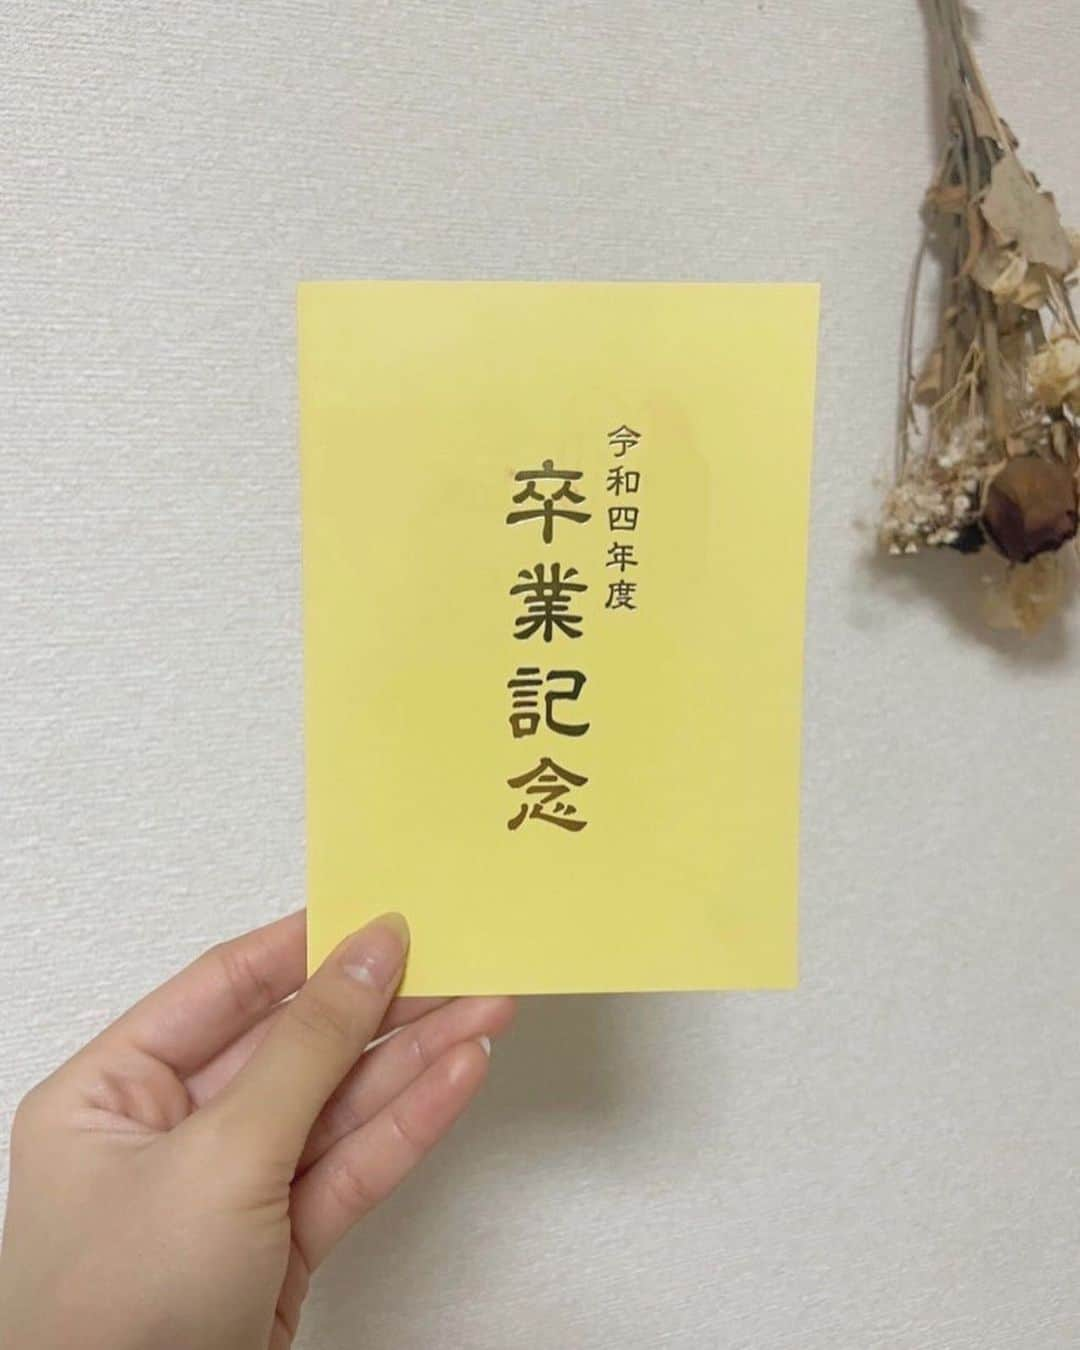 令和四年度
卒業記念